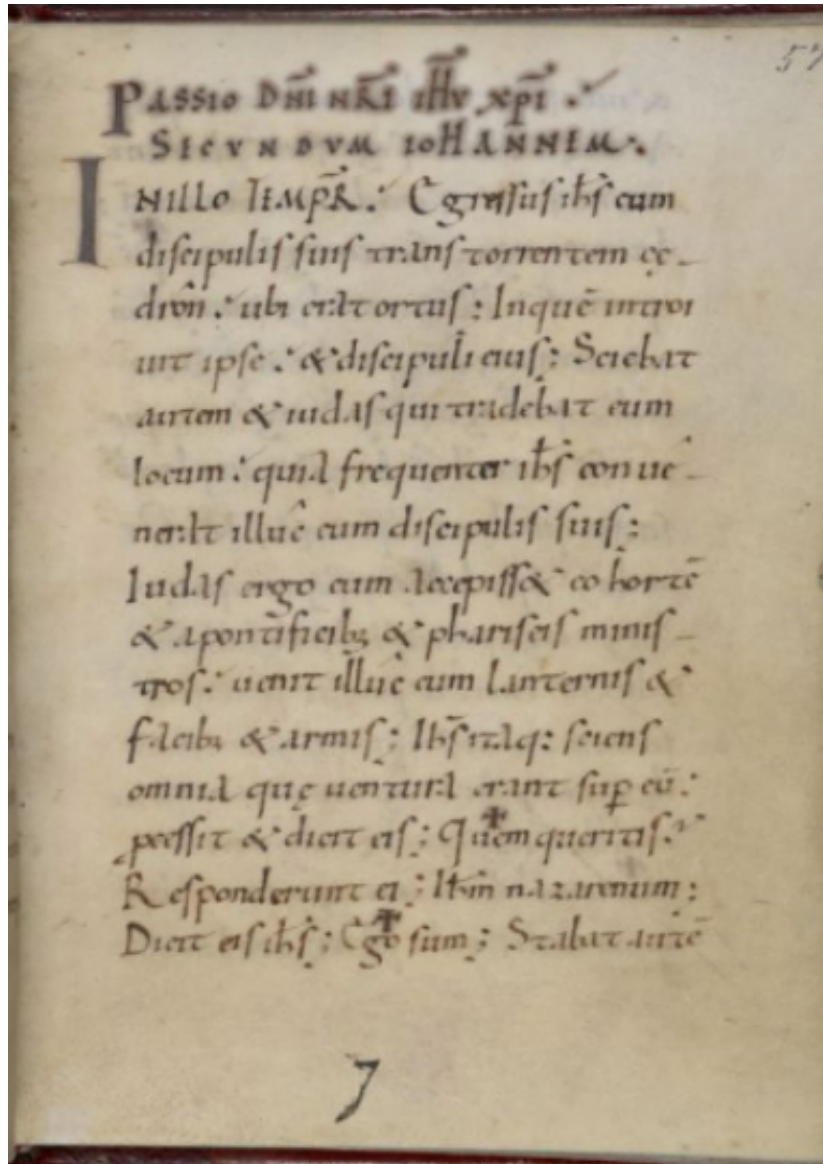 57
PASSIO DN̄I NR̄I IH̄V XP̄I .
SECVNDVM IOHANNEM.
IN ILLO TEMPR̄. Egressus ih̄s cum
discipulis suis trans torrentem ce-
dron. ubi erat ortus; In quē introi
uit ipse. & discipuli eius; Sciebat
autem & iudas qui tradebat eum
locum. quia frequenter ih̄s conue-
nerat illuc cum discipulis suis;
Iudas ergo cum accepiss& cohortē
& a pontificib; & phariseis minis-
tros. uenit illuc cum lanternis &
facib; & armis; Ih̄s itaq: sciens
omnia quę uentura erant sup̄ eū.
ꝓcessit & dicit eis; Quem queritis.
Responderunt ei; Ih̄m nazarenum;
Dicit eis ih̄s; Ego sum; Stabat autē
7